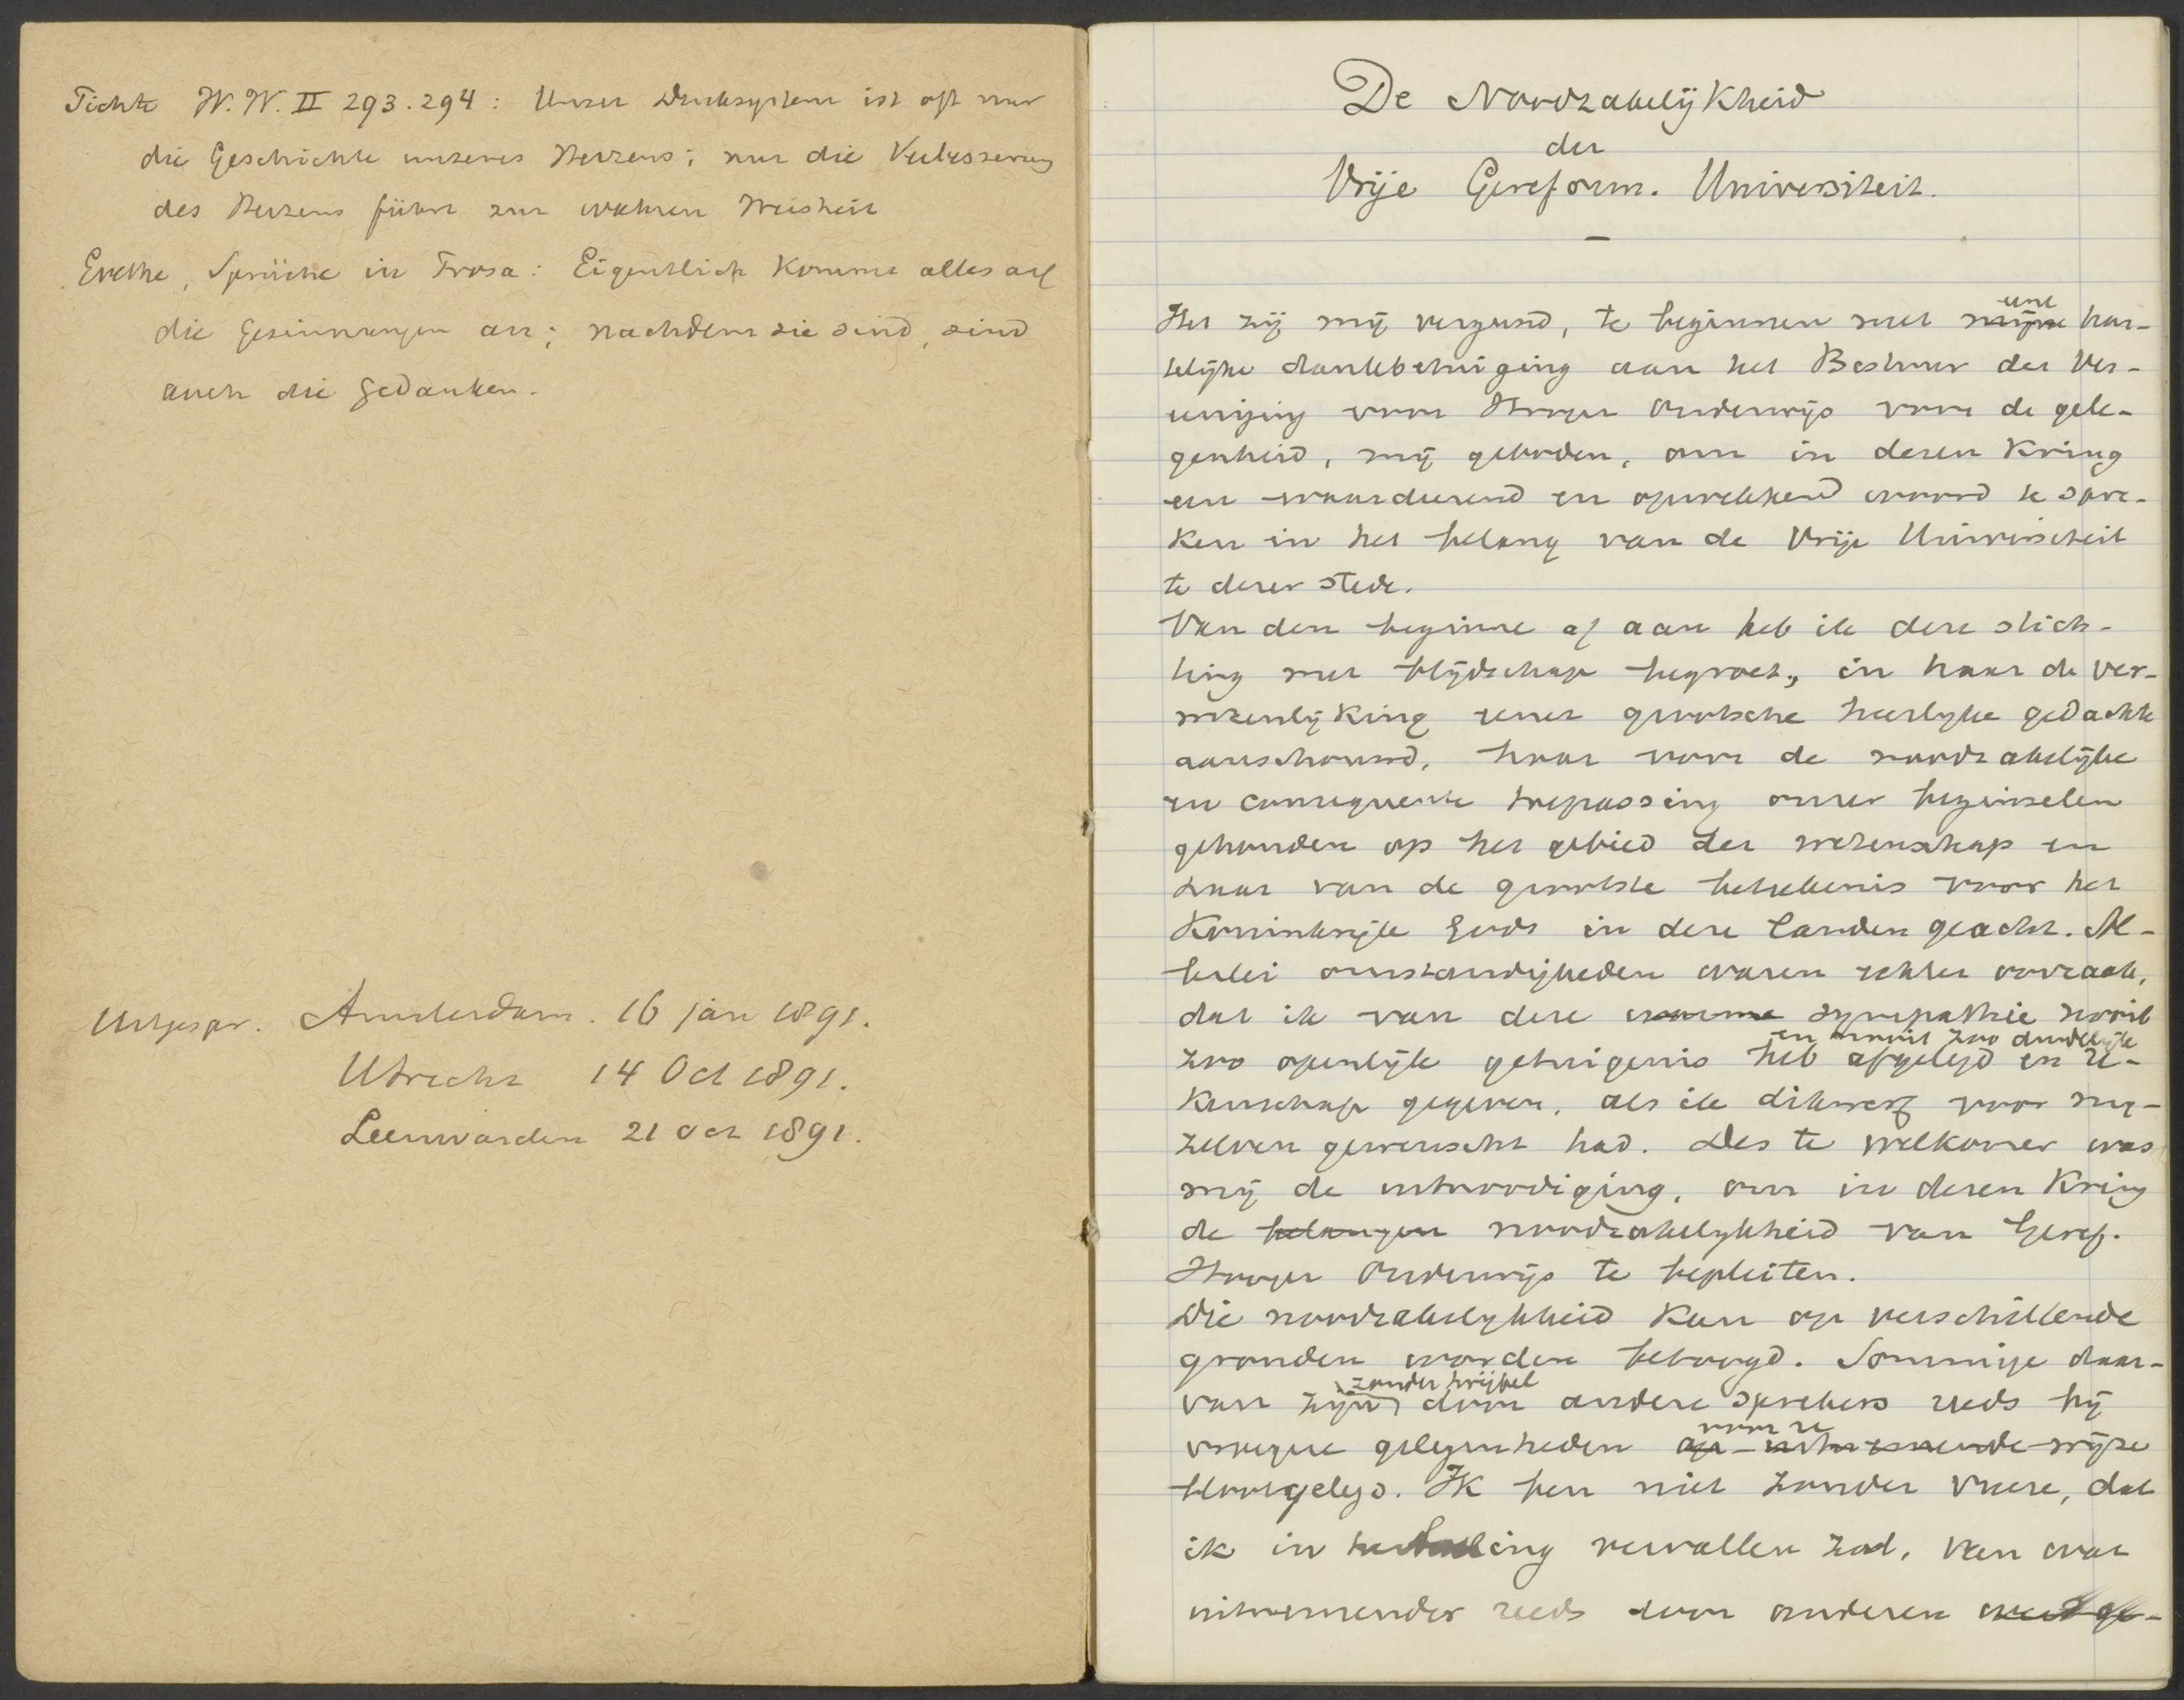 Fichte W.W. II 293.294: Unser Denksystem ist oft nur
die Geschichte unseres Herzens; nur die Verbesserung
des Herzens führt zur wahren Weisheit
Goethe, Sprüche in Prosa: Eigentlich kommt alles auf
die Gesinnungen an; nachdem sie sind, sind
auch die Gedanken.
Uitgespr. Amsterdam. 16 jan 1891.
Utrecht 14 Oct 1891.
Leeuwarden 21 Oct 1891.
De Noodzakelijkheid
der
Vrije Gereform. Universiteit.
—
Het zij mij vergund, te beginnen met mijne eene har-
telijke dankbetuiging aan het Bestuur der Ver-
eeniging voor Hooger Onderwijs voor de gele-
genheid, mij geboden, om in dezen Kring
een waardeerend en opwekkend woord te spre-
ken in het belang van de Vrije Universiteit
te dezer stede.
Van den beginne af aan heb ik deze stich-
ting met blijdschap begroet, in haar de ver-
wezenlijking eener grootsche heerlijke gedachte
aanschouwd, haar voor de noodzakelijke
en consequente toepassing onzer beginselen
gehouden op het gebied der wetenschap en
haar van de grootste beteekenis voor het
Koninkrijk Gods in deze landen geacht. Al-
lerlei omstandigheden waren echter oorzaak,
dat ik van deze warme sympathie nooit
en nooit zoo duidelijk
zoo openlijk getuigenis heb afgelegd en re-
kenschap gegeven, als ik dikwerf voor mij-
zelven gewenscht had. Des te welkomer was
mij de uitnoodiging, om in dezen Kring
de belangen noodzakelijkheid van Geref.
Hooger Onderwijs te bepleiten.
Die noodzakelijkheid kan op verschillende
gronden worden betoogd. Sommige daar-
zonder twijfel
van zijn door andere sprekers reeds bij
vroegere gelegenheden op uitnemende wijze
blootgelegd. Ik ben niet zonder vreeze, dat
ik in herhaling vervallen zal, van wat
uitnemender reeds door anderen werd ge-